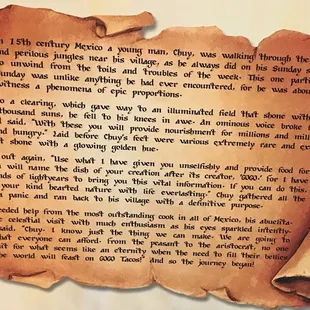 n 15th century Mexico a young man, Chuy, was walking through the
and perilous jungles near his village, as he always did on his Sunday s
to unwind from the toils and troubles of the week. This one parti
Sunday was unlike anything he had ever encountered, for he was about
witness a phenomena of epic proportions.
to a clearing, which gave way to an illuminated field that shone with
thousand suns, he fell to his knees in awe. An ominous voice broke
d said, "With these you will provide nourishment for millions and mil
and hungry." Laid before Chuy's feet were various extremely rare and ex
t shone with a glowing golden hue.
out again, "Use what I have given you unselfishly and provide food for
will name the dish of your creation after its creator, "GOGO." For I ha
nds of lightyears to bring you this vital information. If you can do this,
your kind hearted nature with life everlasting." Chuy gathered all the
a panic and ran back to his village with a definitive purpose.
eeded help from the most outstanding cook in all of Mexico, his abuelita.
celestial visit with much enthusiasm as his eyes sparkled intently.
said, "Chuy. I know just the thing we can make. We are going to
that everyone can afford. From the peasant to the aristocrat, no one
it for what seems like an eternity when the need to fill their bellies
world will feast on GOGO Tacos!" and so the journey began!